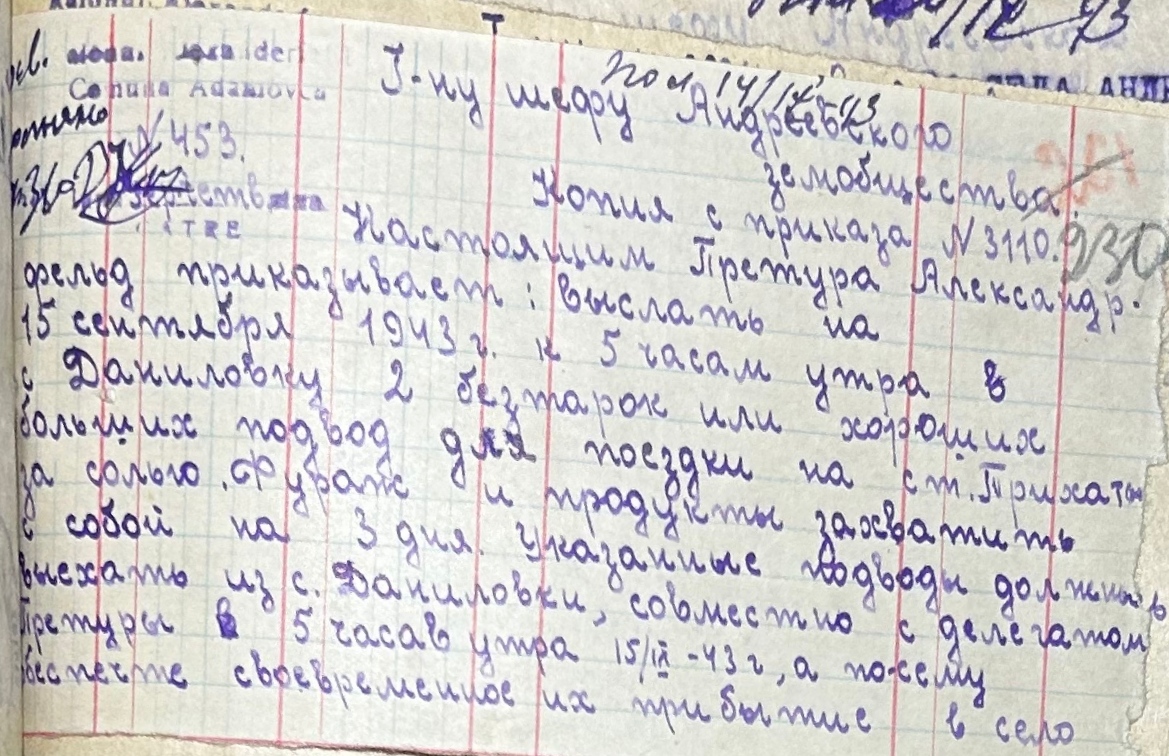 Comuna Adamovca
N 453.
Г-ну шефу Андреевского
земобщества.
Копия с приказа N 3110.
230
Настоящим Претура Александр-
фельд приказывает: выслать на
15 сентября 1943 г. к 5 часам утра в
с Даниловку 2 безтарок или хороших
больших подвод для поездки на ст.
за солью. Фураж и продукты захватить
с собой на 3 дня. Указанные подводы должны
выехать из с. Даниловки, совместно с делегатом
Претуры в 5 часов утра 15/IX-43 г, а посему
обеспечте своевременное их прибытие в село